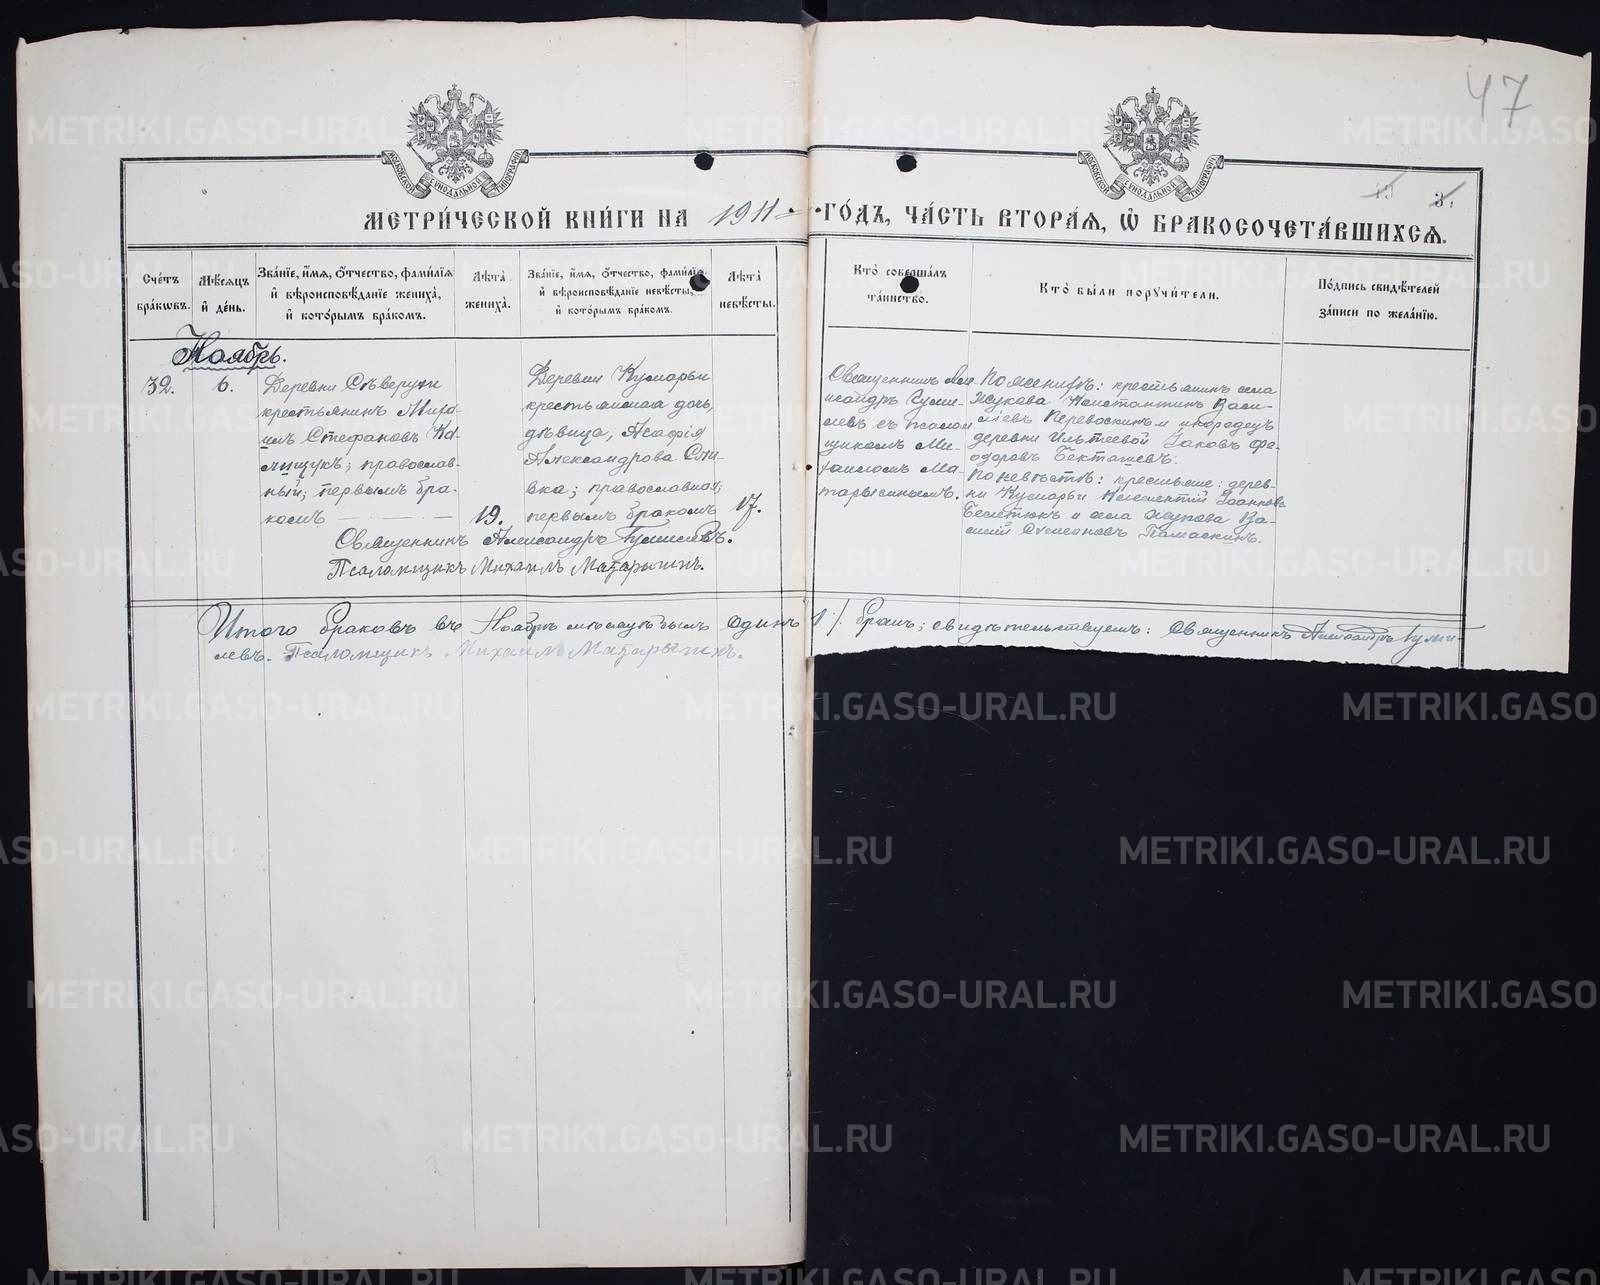 47
МОСКОВСКОЙ СѴНОДАЛЬНОЙ ТИПОГРАФІИ
МОСКОВСКОЙ СѴНОДАЛЬНОЙ ТИПОГРАФІИ
МЕТРИ́ЧЕСКОЙ КНИ́ГИ НА 1911 ГО́ДЪ, ЧА́СТЬ ВТОРА́Я, Ѡ БРАКОСОЧЕТА́ВШИХСѦ.
Сче́тъ бра́кѡвъ.
Мѣ́сѧцъ и де́нь.
Зва́нїе, и́мѧ, ѻ́тчество, фами́лїѧ и вѣроисповѣ́данїе жениха̀, и кото́рымъ бра́комъ.
Лѣта̀ жениха̀.
Зва́нїе, и́мѧ, ѻ́тчество, фами́лїѧ и вѣроисповѣ́данїе невѣ́сты, и кото́рымъ бра́комъ.
Лѣта̀ невѣ́сты.
Кто̀ соверша́лъ та́инство.
Кто̀ бы́ли порꙋчи́тели.
По́дпись свидѣ́телей за́писи по жела́нїю.
Ноябрь.
32.
6.
Деревни Сѣверухи
крестьянинъ Миха-
илъ Стефановъ Ка-
лищукъ; православ-
ный; первымъ бра-
комъ
19.
Деревни Кумарьи
крестьянская дочь,
дѣвица, Агафія
Александрова Спи-
вка; православная;
первымъ бракомъ
17.
Священникъ Але-
ксандръ Гуми-
левъ съ псалом-
щикомъ Ми-
хаиломъ Ма-
тарыгинымъ.
По женихѣ: крестьянинъ села
Жукова Константинъ Васи-
ліевъ Перевоскинъ и инородецъ
деревни Ильтеевой Іаковъ Фе-
одоровъ Бекташевъ.
По невѣстѣ: крестьяне: дерев-
ни Кумарьи Климентій Іоанновъ
Бегметюкъ и села Жукова Ва-
силій Симеоновъ Памаскинъ.
Священникъ Александръ Гумилевъ.
Псаломщикъ Михаилъ Матарыгинъ.
Итого браковъ въ Ноябрѣ мѣсяцѣ былъ одинъ /1/ бракъ; свидѣтельствуемъ: Священникъ Александръ Гуми-
левъ. Псаломщикъ Михаилъ Матарыгинъ.